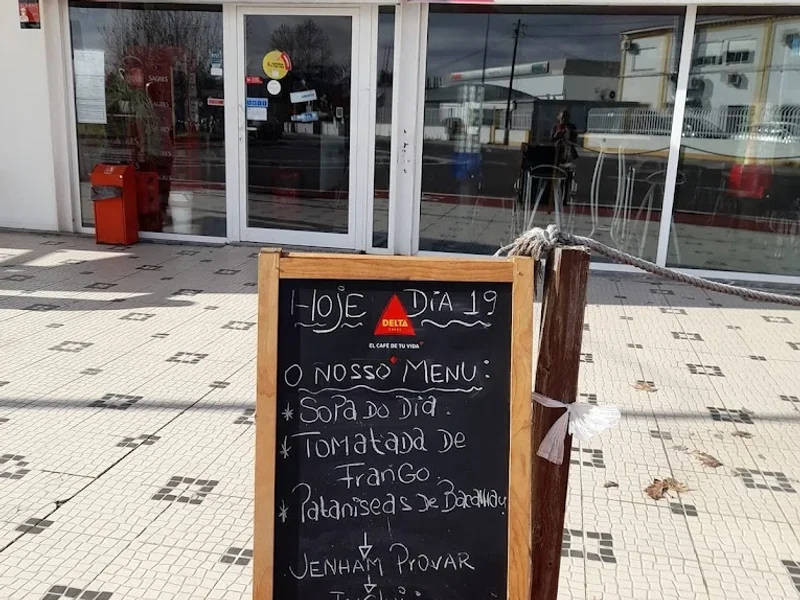 SAGRES
HOJE DIA 19
DELTA
CAFÉS
EL CAFÉ DE TU VIDA
O NOSSO MENU:
* SOPA DO DIA.
* TOMATADA DE
FRANGO.
* PATANISCAS DE BACALHAU
↓
VENHAM PROVAR
↓